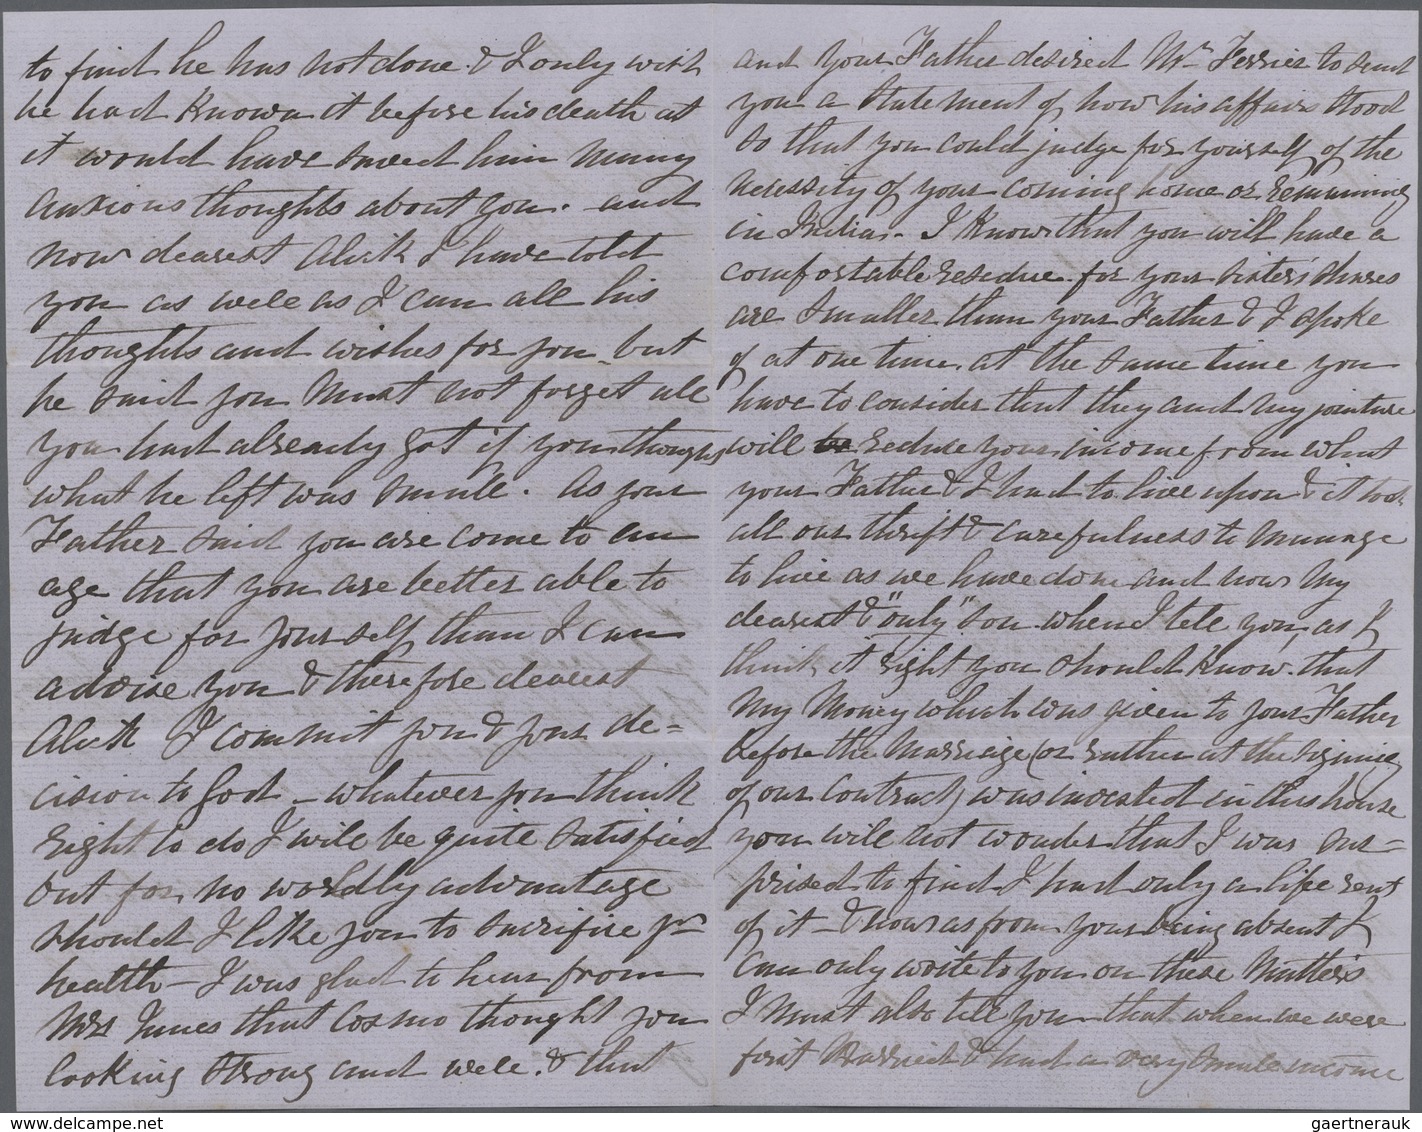 to find he has not done. & I only wish
he had known it before his death as
it would have saved him many
anxious thoughts about you. and
now dearest Alick I have told
you as well as I can all his
thoughts and wishes for you but
he said you must not forget all
you had already got if you thought
what he left was small. As your
Father said you are come to an
age that you are better able to
judge for yourself than I can
advise you & therefore dearest
Alick I commit you & your de=
cision to God – whatever you think
right to do I will be quite satisfied
but for no worldly advantage
should I like you to sacrifice yr
health – I was glad to hear from
Mrs Innes that Cosmo thought you
looking strong and well. & that
and your Father desired Mr Ferrier to send
you a statement of how his affairs stood
so that you could judge for yourself of the
necessity of your coming home or remaining
in India. – I know that you will have a
comfortable residue for your sisters' shares
are smaller than your Father & I spoke
of at one time, at the same time you
have to consider that they and my jointure
will reduce your income from what
your Father & I had to live upon & it took
all our thrift & carefulness to manage
to live as we have done and now my
dearest & "only" son when I tell you, as I
think it right you should know, that
my money which was given to your Father
before the marriage (or rather at the signing
of our contract) was invested in this house
you will not wonder that I was sur=
prised to find I had only a life rent
of it – & now as from your being absent I
can only write to you on these matters
I must also tell you that when we were
first married & had a very small income
gaertnerauk